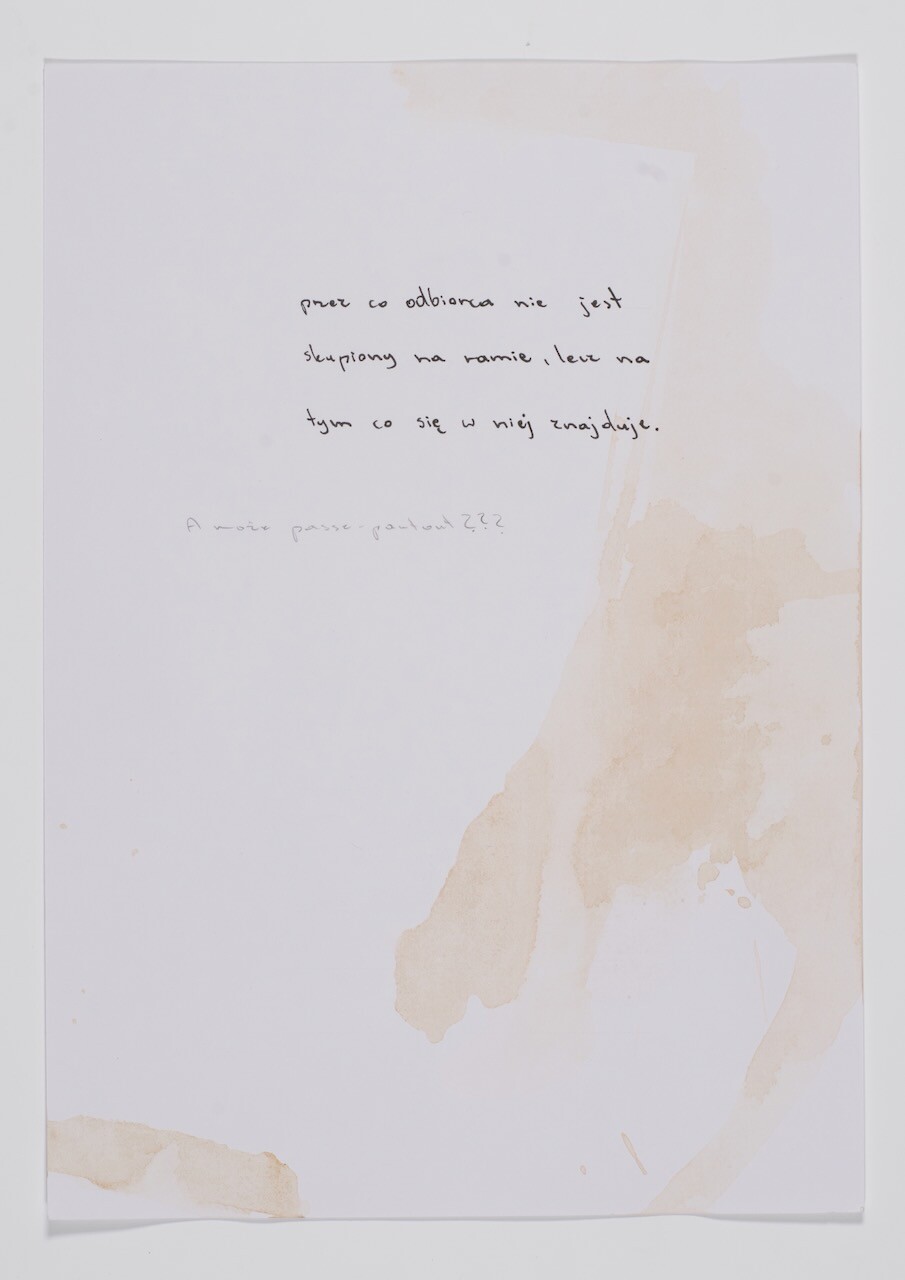 przez co odbiorca nie jest
skupiony na ramie, lecz na
tym co się w niej znajduje.
A może passe-partout???